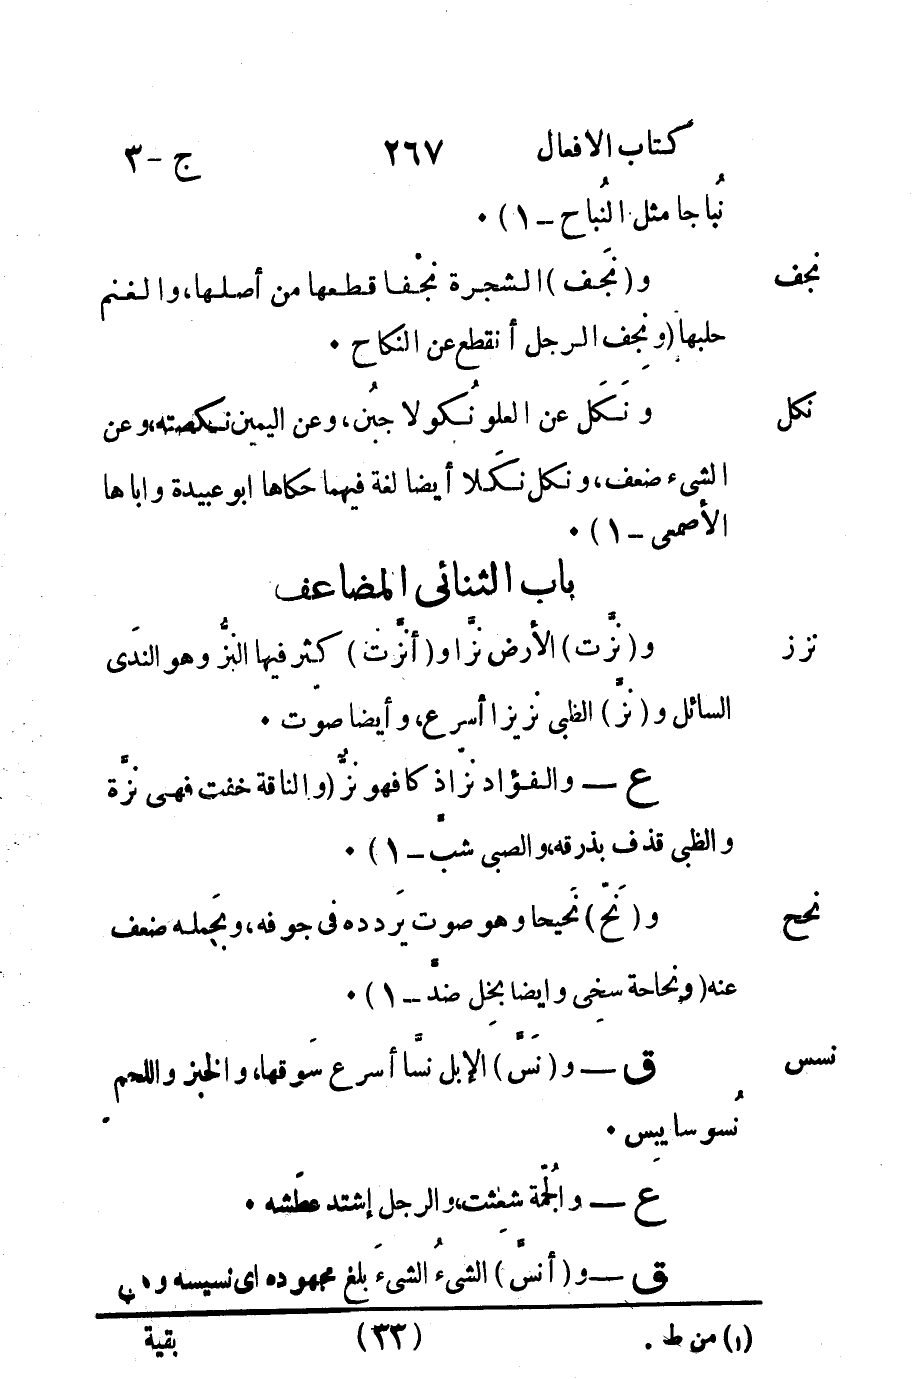 كتاب الافعال ٢٦٧ ج-٣
نُباجا مثل النُباح – ١) ٠
نجف و (نَجَف) الشجرة نجْفا قطعها من أصلها، والغنم
حلبها (ونجِف الرجل أنقطع عن النكاح ٠
نكل و نَكَل عن العلو نُكولا جبُن، وعن اليمين نكصته، وعن
الشىء ضعف، ونكل نكَلا أيضا لغة فيهما حكاها ابو عبيدة واباها
الأصمعى – ١) ٠
باب الثنائى المضاعف
نزز و (نزَّت) الأرض نزًّا و (أنزَّت) كثر فيها النزُّ وهو الندَى
السائل و (نزَّ) الظبى نزيزا أسرع، وأيضا صوّت ٠
ع – والفؤاد نزّا ذكا فهو نزٌّ (والناقة خفت فهى نزَّة
والظبى قذف بذرقه، والصبى شبَّ – ١) ٠
نحح و (نَحّ) نَحيحا وهو صوت يَردده فى جوفه، وبَجمله ضعف
عنه (ونحاحة سخِى وايضا بخِل ضدَّ – ١) ٠
نسس ق – و (نَسَّ) الإبل نسًّا أسرع سَوقها، والخبز واللحم
نُسوسا يبِس ٠
ع – والجُمّة شعِثت، والرجل إشتد عطَشه ٠
ق – و (أنسَّ) الشىءُ الشىءَ بلغ مجهوده اى نسيسه و
(١) من ط . (٣٣) بقية